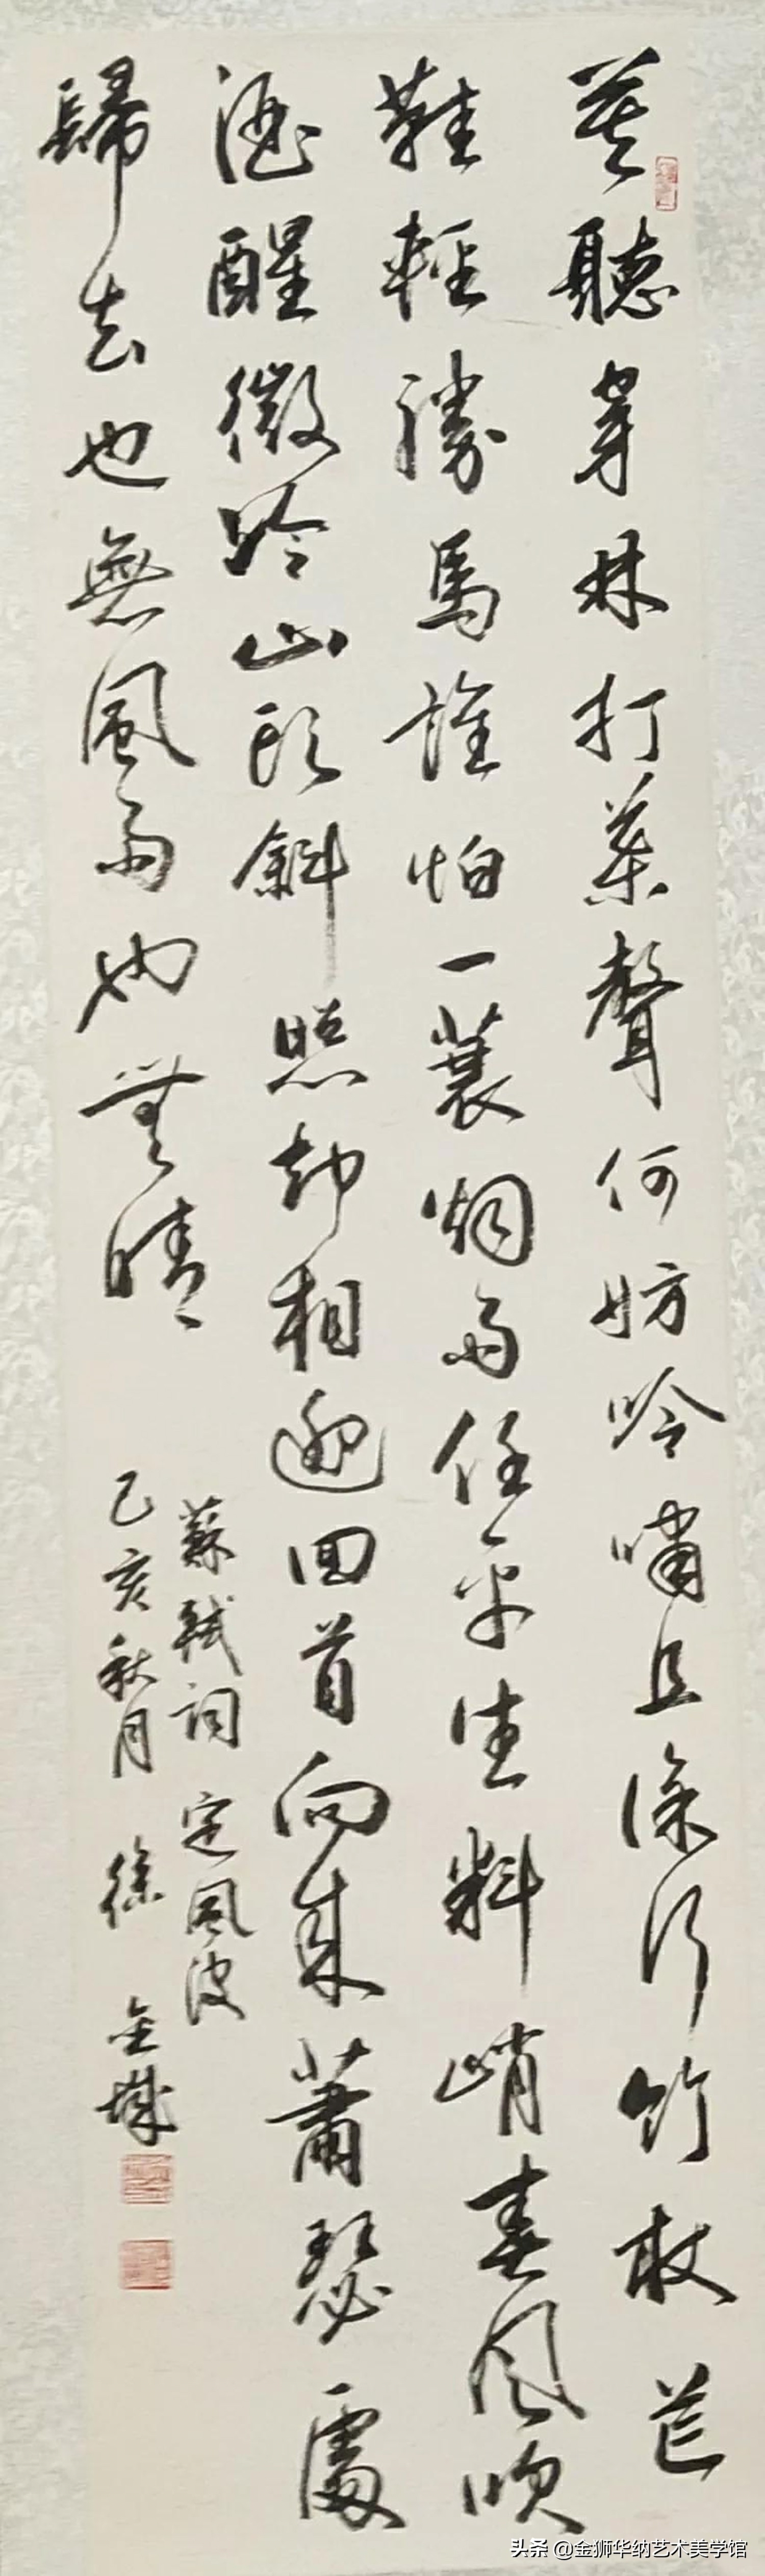 莫聽穿林打葉聲何妨吟嘯且徐行竹杖芒
鞋輕勝馬誰怕一蓑烟雨任平生料峭春風吹
酒醒微冷山頭斜照却相迎回首向來蕭瑟處
歸去也無風雨也無晴
蘇軾詞 定風波
己亥秋月 徐金城
头条 @金狮华纳艺术美学馆